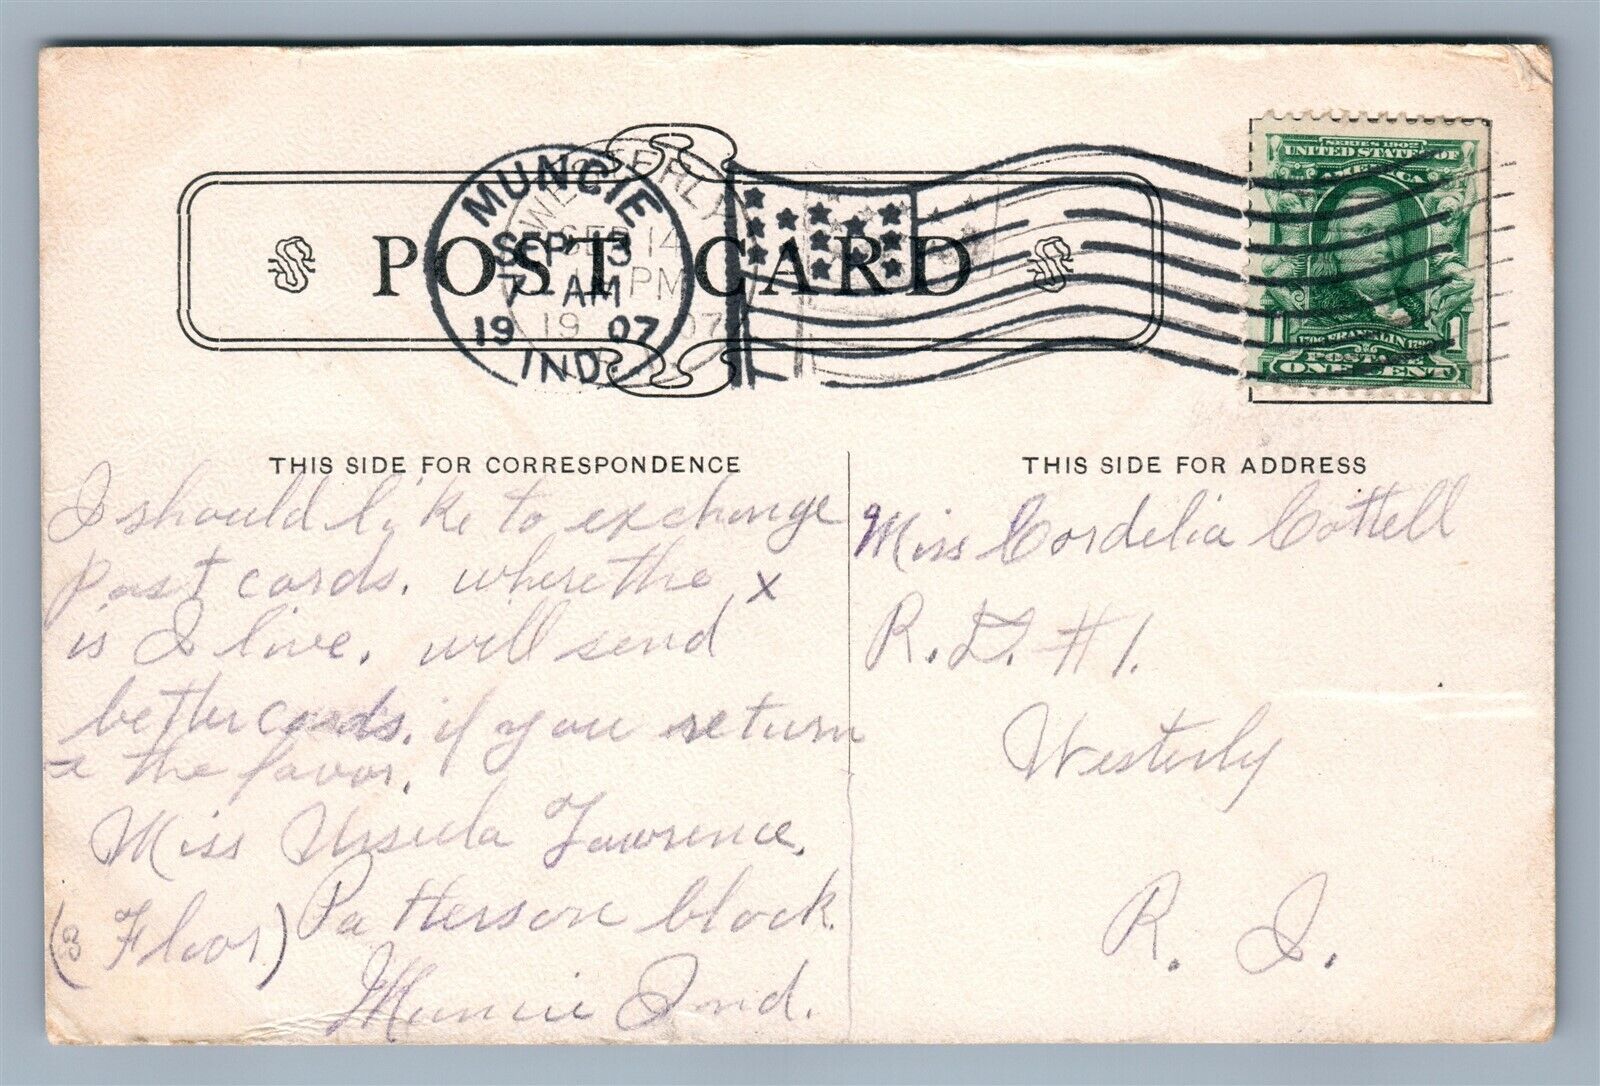 MUNCIE
SEP 13
7 AM
19 07
IND.
WESTERLY
SEP 14
PM
19 07
POST CARD
SERIES 1902
UNITED STATES OF
AMERICA
1706 FRANKLIN 1790
1 POSTAGE 1
ONE CENT
THIS SIDE FOR CORRESPONDENCE
I should like to exchange
Post cards. where the x
is I live. will send
better cards. if you return
the favor.
Miss Ursula Lawrence,
(3 Floor) Patterson block.
Muncie Ind.
THIS SIDE FOR ADDRESS
Miss Cordelia Cottell
R. D. #1.
Westerly
R. I.